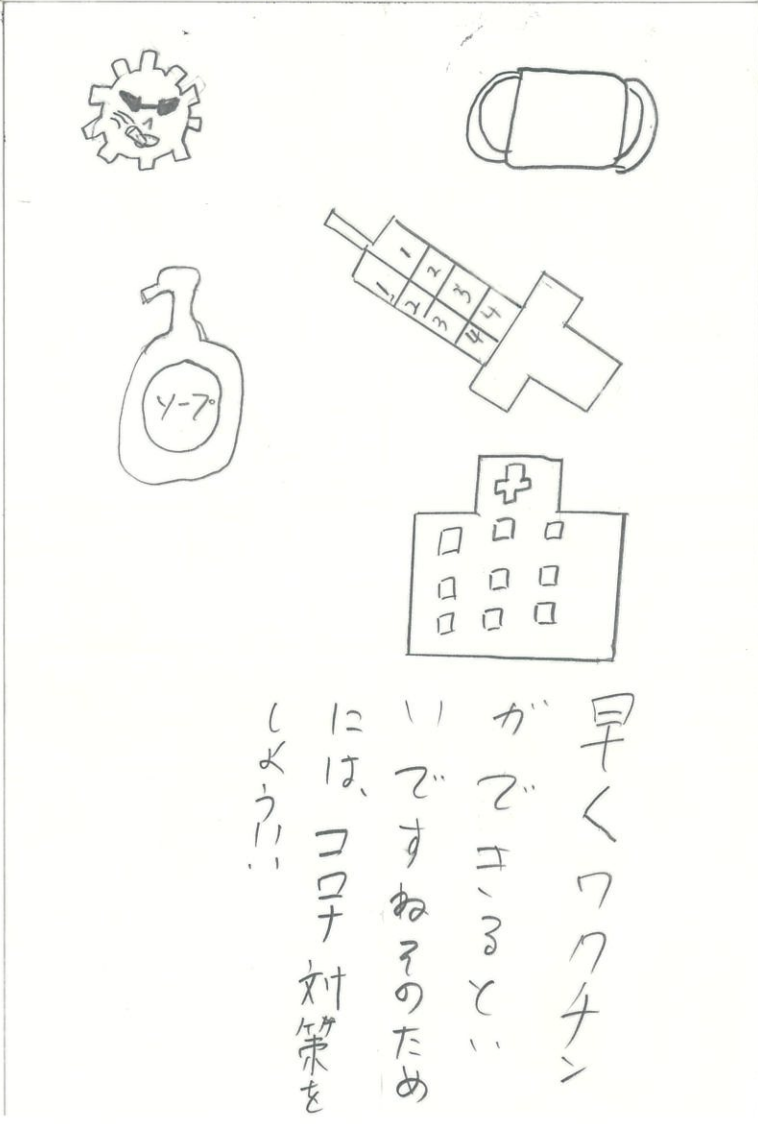 1 2 3 4
1 2 3 4
ソープ
早くワクチン
ができるとい
いですねそのため
には、コロナ対策を
しよう!!